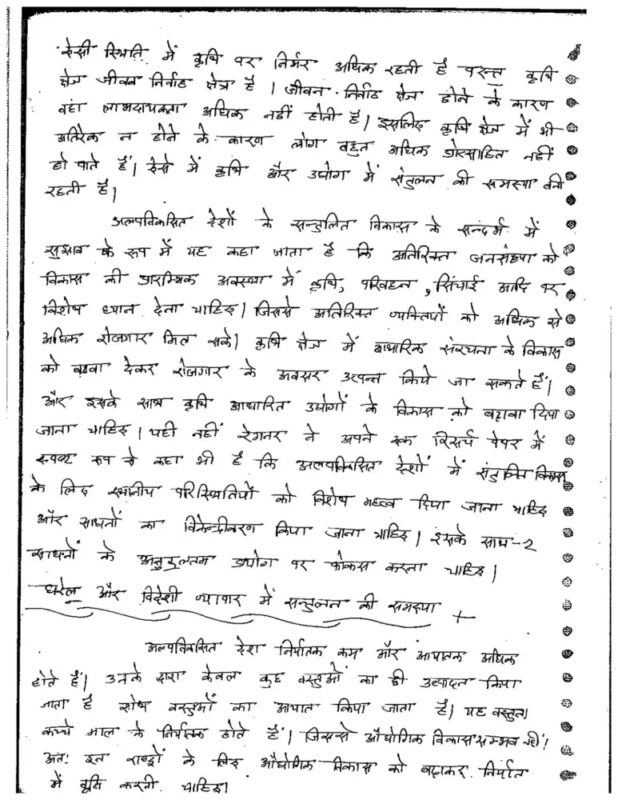 ऐसी स्थिति में कृषि पर निर्भर अधिक रहती है परन्तु कृषि
क्षेत्र जीवन निर्वाह क्षेत्र है। जीवन निर्वाह क्षेत्र होने के कारण
वहां लाभदायकता अधिक नहीं होती है। इसलिए कृषि क्षेत्र में भी
अतिरेक न होने के कारण लोग बहुत अधिक प्रोत्साहित नहीं
हो पाते हैं। ऐसे में कृषि और उद्योग में संतुलन की समस्या बनी
रहती है।
अल्पविकसित देशों के सन्तुलित विकास के सन्दर्भ में
सुझाव के रूप में यह कहा जाता है कि अतिरिक्त जनसंख्या को
विकास की प्रारम्भिक अवस्था में कृषि, परिवहन, सिंचाई आदि पर
विशेष ध्यान देना चाहिए। जिससे अतिरिक्त व्यक्तियों को अधिक से
अधिक रोजगार मिल सके। कृषि क्षेत्र में व्यापारिक संरचना के विकास
को बढ़ावा देकर रोजगार के अवसर उत्पन्न किये जा सकते हैं।
और इसके साथ कृषि आधारित उद्योगों के विकास को बढ़ावा दिया
जाना चाहिए। यही नहीं रेगनर ने अपने एक रिसर्च पेपर में
स्पष्ट रूप से कहा भी है कि अल्पविकसित देशों में संतुलित विकास
के लिए स्थानीय परिस्थितियों को विशेष महत्व दिया जाना चाहिए
और साधनों का विकेन्द्रीकरण किया जाना चाहिए। इसके साथ-2
साधनों के अनुकूलतम उपयोग पर फोकस करना चाहिए।
घरेलू और विदेशी व्यापार में सन्तुलन की समस्या
अल्पविकसित देश निर्यातक कम और आयातक अधिक
होते हैं। उनके द्वारा केवल कुछ वस्तुओं का ही उत्पादन किया
जाता है शेष वस्तुओं का आयात किया जाता है। यह वस्तुतः
कच्चे माल के निर्यातक होते हैं। जिससे औद्योगिक विकास सम्भव नहीं।
अतः इन राष्ट्रों के लिए औद्योगिक विकास को बढ़ाकर निर्यात
में वृद्धि करनी चाहिए।